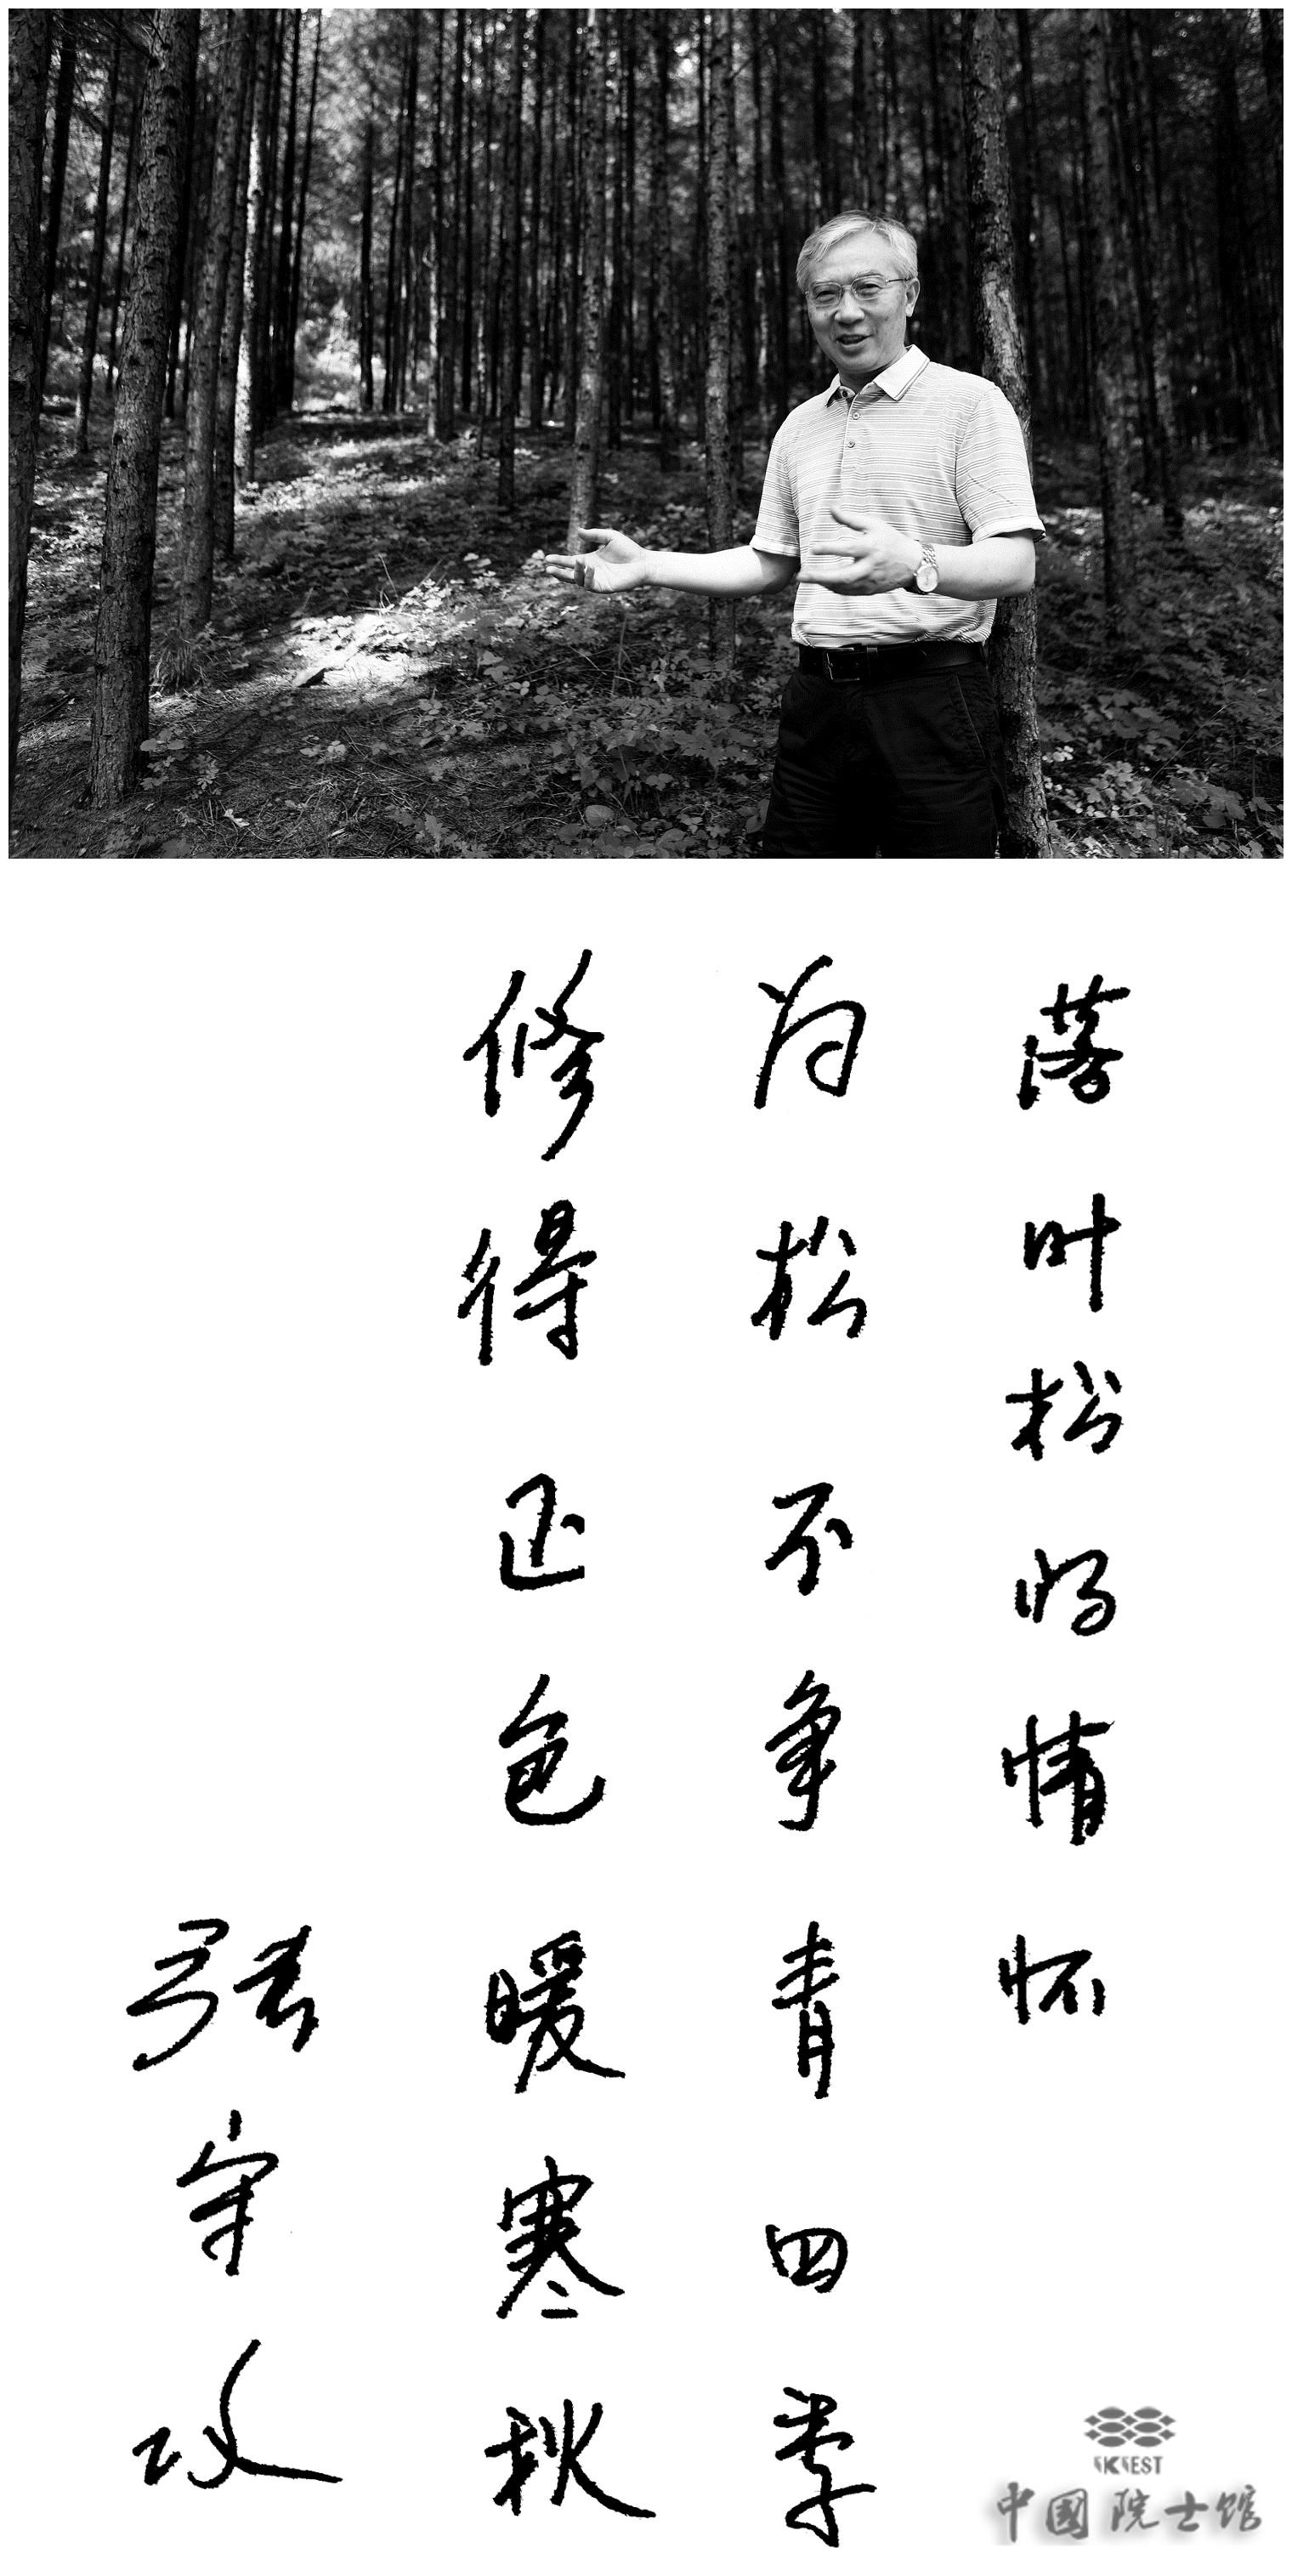 落叶松的情怀
为松不争青四季
修得正色暖寒秋
张守攻
IKCEST
中國院士馆